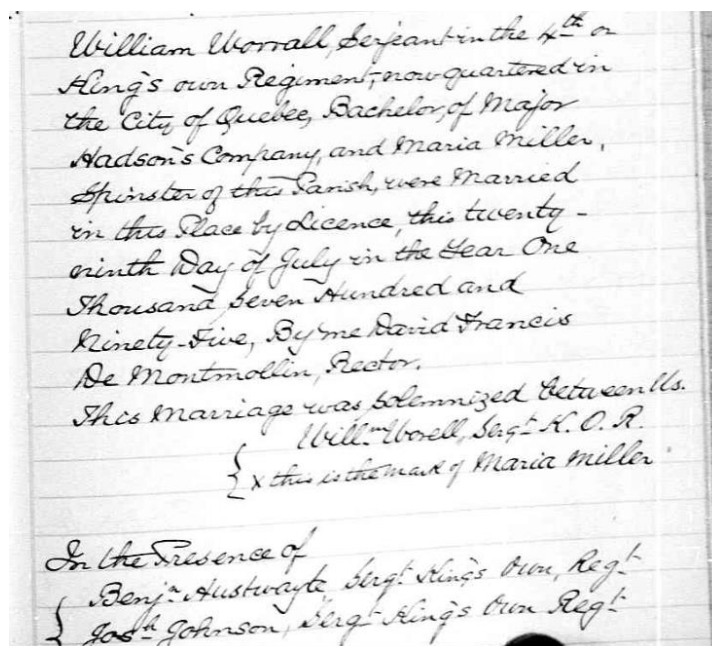 William Worrall, Serjeant in the 4th or
King's own Regiment, now quartered in
the City of Quebec, Bachelor, of Major
Hadson's Company, and Maria Miller,
Spinster of this Parish, were Married
in this Place by Licence, this twenty-
ninth Day of July in the Year One
Thousand, Seven Hundred and
Ninety-Five, By me David Francis
De Montmollin, Rector.
This Marriage was solemnized between Us.
Willm Worell, Sergt K. O. R.
x this is the mark of Maria Miller
In the Presence of
Benjn Austwayte, Sergt King's Own, Regt
Josh Johnson, Sergt King's Own Regt